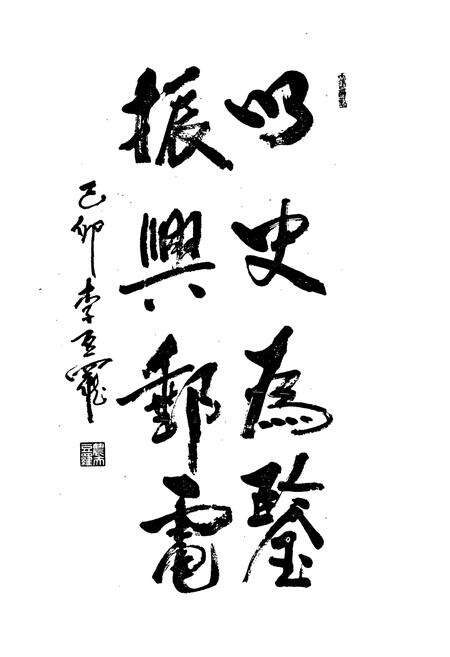 以史為鑒
振興郵電
己卯 李玉